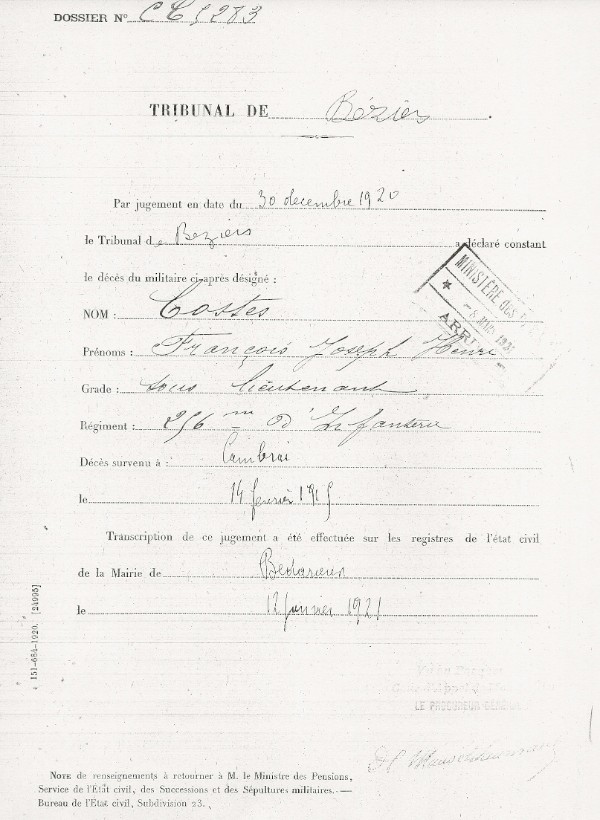 DOSSIER N°
TRIBUNAL DE Béziers.
Par jugement en date du 30 decembre 1920
le Tribunal de Beziers a déclaré constant
le décés du militaire ci-après désigné :
MINISTÈRE DES
NOM : Costes
Prénoms : François Joseph Henri
Grade : sous lieutenant
Régiment : 256 me d'Infanterie
Décès survenu à : Cambrai
le 14 fevrier 1915
Transcription de ce jugement a été effectuée sur les registres de l'état civil
de la Mairie de Bedarieux
le 12 janvier 1921
151-684-1920. [24995]
LE PROCUREUR
NOTE de renseignements à retourner à M. le Ministre des Pensions,
Service de l'État civil, des Successions et des Sépultures militaires. —
Bureau de l'État civil, Subdivision 23.